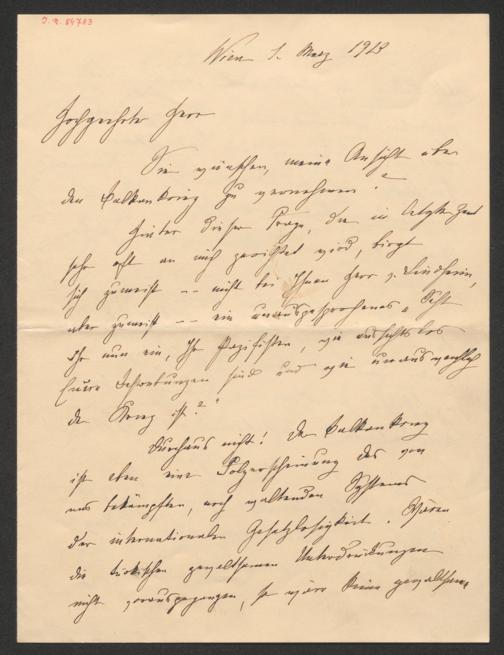 J. N. 84783
Wien 1. März 1913
Hochgeehrter Herr
Sie wünschen, meine Ansicht über
den Balkankrieg zu vernehmen?
Hinter dieser Frage, die in letzter Zeit
sehr oft an mich gerichtet wird, birgt
sich zumeist -- nicht bei Ihnen Herr v. Lindheim,
aber zumeist -- ein unausgesprochenes „Seht
Ihr nun ein, Ihr Pazifisten, wie aussichtslos
Eure Bestrebungen sind und wie unausweichlich
der Krieg ist?"
Durchaus nicht! Der Balkankrieg
ist eben eine Folgeerscheinung des von
uns bekämpften, noch waltenden Systems
der internationalen Gesetzlosigkeit. Wären
die türkischen gewaltsamen Unterdrückungen
nicht vorausgegangen, so wäre keine gewaltsame